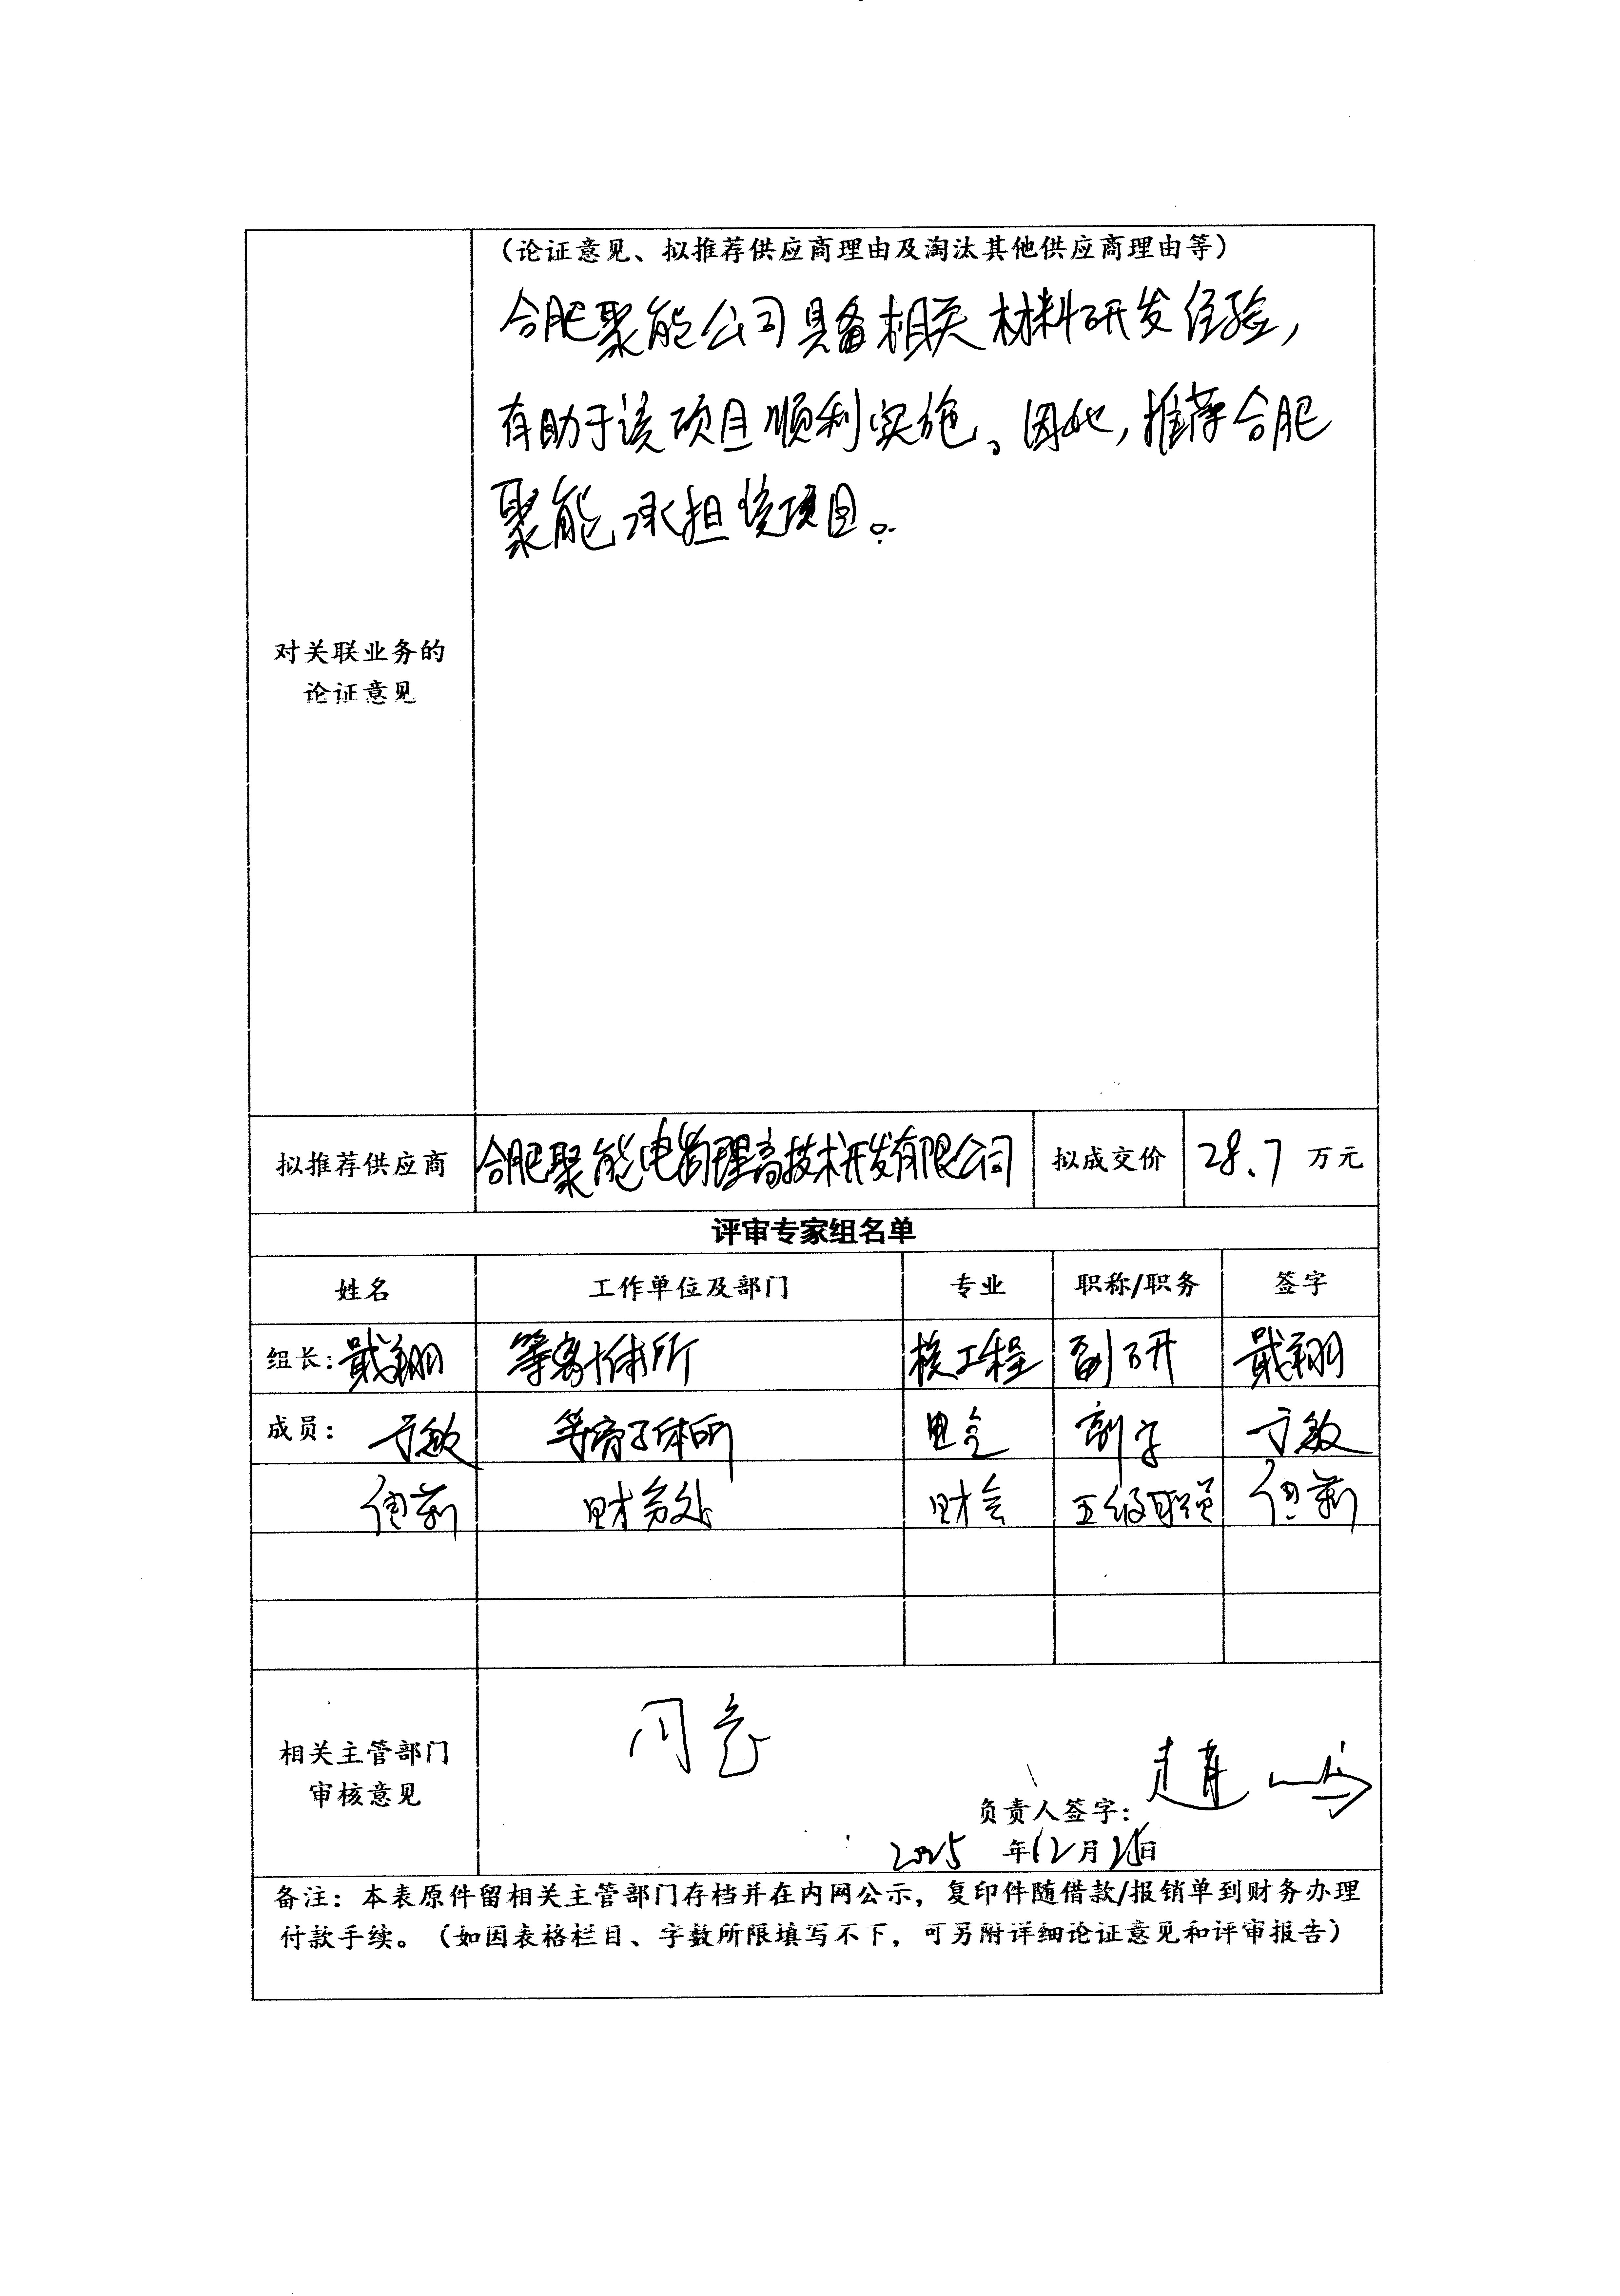 （论证意见、拟推荐供应商理由及淘汰其他供应商理由等）
合肥聚能公司具备相关材料研发经验，
有助于该项目顺利实施。因此，推荐合肥
聚能承担该项目。
对关联业务的
论证意见
拟推荐供应商 合肥聚能电物理高技术开发有限公司 拟成交价 28.7 万元
评审专家组名单
姓名 工作单位及部门 专业 职称/职务 签字
组长：戴翔 等离子体所 核工程 副研 戴翔
成员：方敏 等离子体所 电气 方敏
财务处 财会 五级职员
同意
相关主管部门
审核意见
负责人签字：
2025 年12月25日
备注：本表原件留相关主管部门存档并在内网公示，复印件随借款/报销单到财务办理
付款手续。（如因表格栏目、字数所限填写不下，可另附详细论证意见和评审报告）